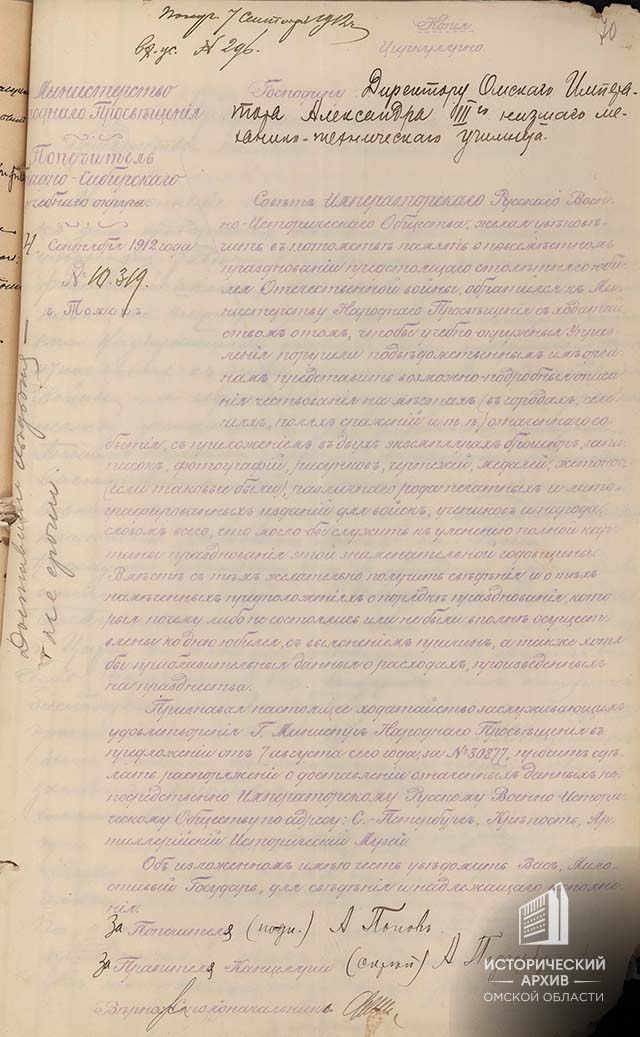 Получ. 7 Сентября 1912 г.
Вх. ус. № 296.
Копия
Циркулярно.
70
Министерство
роднаго Просвѣщенія
Попечитель
падно-Сибирскаго
учебнаго округа.
4. Сентября 1912 года
№ 10.319.
г. Томскъ
Доставить свѣдѣнія —
Господину Директору Омскаго Импера-
тора Александра III го низшаго ме-
ханико-техническаго училища.
Совѣтъ Императорскаго Русскаго Воен-
но-Историческаго Общества, желая увѣковѣ-
чить въ потомствѣ память о повсемѣстномъ
празднованіи предстоящаго столѣтняго юби-
лея Отечественной войны, обратился къ Ми-
нистерству Народнаго Просвѣщенія съ ходатай
ствомъ о томъ, чтобы учебно-окружныя Управ
ленія поручили подвѣдомственнымъ имъ орга-
намъ представить возможно-подробныя описа
нія чествованія на мѣстахъ (въ городахъ, селе
ніяхъ, поляхъ сраженій и т. п.) означеннаго со-
бытія, съ приложеніемъ въ двухъ экземплярахъ брошюръ, запи
писокъ, фотографій, рисунковъ, чертежей, медалей, жетоновъ
(если таковые были), различнаго рода печатныхъ и лито-
графированныхъ изданій для войскъ, учениковъ и народа,
словомъ всего, что могло-бы служить къ уясненію полной кар-
тины празднованія этой знаменательной годовщины.
Вмѣстѣ съ тѣмъ желательно получить свѣдѣнія и о тѣхъ
намѣченныхъ предположеніяхъ о порядкѣ празднованія, кото-
рыя почему либо не состоялись или не были вполнѣ осущест-
влены ко дню юбилея, съ выясненіемъ причинъ, а также хотя
бы приблизительныя данныя о расходахъ, произведенныхъ
на празднества.
Признавая настоящее ходатайство заслуживающимъ
удовлетворенія Г. Министръ Народнаго Просвѣщенія въ
предложеніи отъ 7 августа сего года, за № 30877, проситъ сдѣ-
лать распоряженіе о доставленіи означенныхъ данныхъ не-
посредственно Императорскому Русскому Военно-Истори-
ческому Обществу по адресу: С.-Петербургъ, Крѣпость, Ар-
тиллерійскій Историческій Музей
Объ изложенномъ имѣю честь увѣдомить Васъ, Мило-
стивый Государь, для свѣдѣнія и надлежащаго исполне-
нія.
За Попечителя (подп.) А Поповъ.
За Правителя Канцеляріи А
Вѣрно: Столоначальникъ
ИСТОРИЧЕСКИЙ
АРХИВ
ОМСКОЙ ОБЛАСТИ